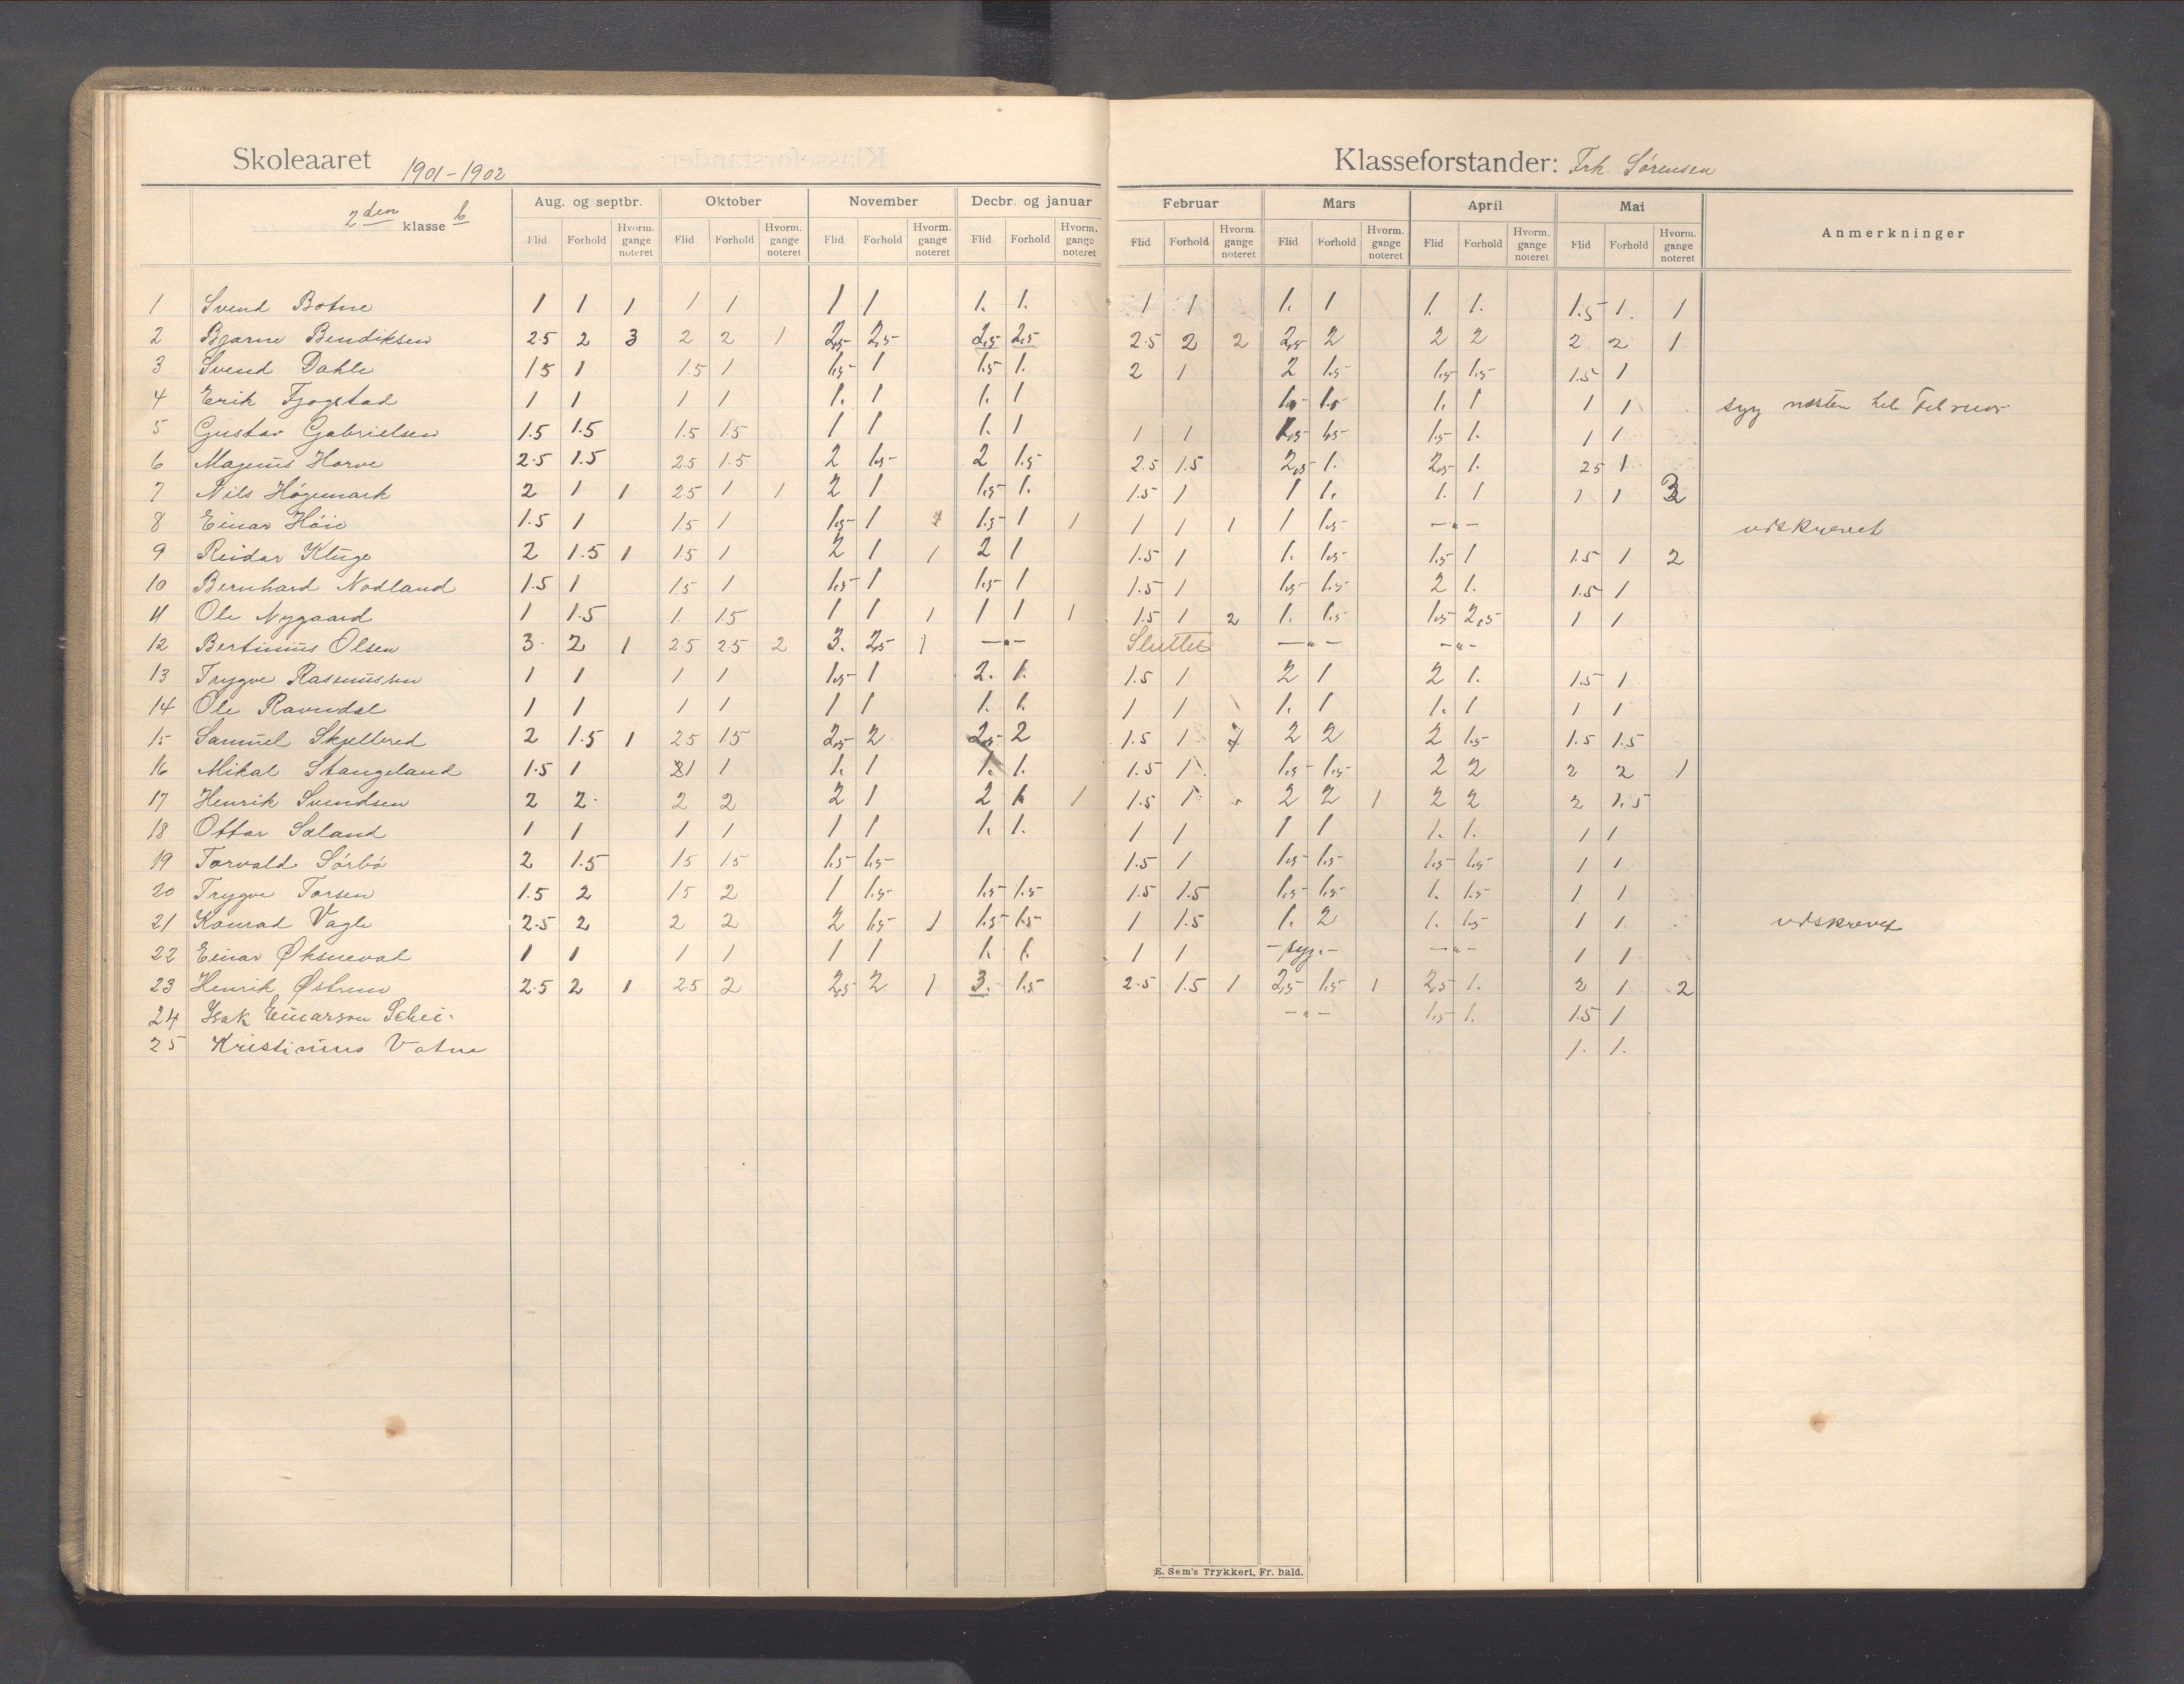 Skoleaaret 1901-1902
Klasseforstander: Frk. Sørensen
2den klasse b
Aug. og septbr. Oktober November Decbr. og januar Februar Mars April Mai Anmerkninger
Flid Forhold Hvorm. gange noteret Flid Forhold Hvorm. gange noteret Flid Forhold Hvorm. gange noteret Flid Forhold Hvorm. gange noteret Flid Forhold Hvorm. gange noteret Flid Forhold Hvorm. gange noteret Flid Forhold Hvorm. gange noteret Flid Forhold Hvorm. gange noteret
1 Svend Botne 1 1 1 1 1 1 1 1. 1. 1 1 1. 1 1. 1. 1.5 1. 1
2 Bjarne Bendiksen 2.5 2 3 2 2 1 2,5 2,5 2,5 2,5 2.5 2 2 2,5 2 2 2 2 2 1
3 Svend Dahle 1 5 1 1.5 1 1,5 1 1,5 1. 2 1 2 1,5 1,5 1,5 1.5 1
4 Erik Fjogstad 1 1 1 1 1. 1 1. 1 1,5 1,5 1. 1 1 1 syg næsten hele Februar
5 Gustav Gabrielsen 1.5 1.5 1.5 1.5 1 1 1. 1 1 1 1,5 1,5 1,5 1. 1 1
6 Magnus Horve 2.5 1.5 2.5 1.5 2 1,5 2 1,5 2.5 1.5 2,5 1. 2,5 1. 2 5 1
7 Nils Høgemark 2 1 1 2.5 1 1 2 1 1,5 1. 1.5 1 1 1. 1. 1 1 1 3
8 Einar Höie 1.5 1 1.5 1 1,5 1 1,5 1 1 1 1 1 1 1,5 —„— udskrevet
9 Reidar Kluge 2 1.5 1 1.5 1 2 1 1 2 1 1.5 1 1. 1,5 1,5 1 1.5 1 2
10 Bernhard Nodland 1.5 1 1.5 1 1,5 1 1,5 1 1.5 1 1,5 1,5 2 1. 1.5 1
11 Ole Nygaard 1 1.5 1. 1.5 1 1 1 1 1 1 1.5 1 2 1. 1,5 1,5 2,5 1 1
12 Bertinius Olsen 3. 2 1 2 5 2.5 2 3. 2,5 1 —„— Sluttet —„— —„—
13 Trygve Rasmussen 1 1 1 1 1,5 1 2. 1. 1.5 1 2 1 2 1. 1.5 1
14 Ole Ravndal 1 1 1 1 1 1 1. 1. 1 1 1. 1 1. 1 1 1
15 Samuel Skjelbred 2 1.5 1 2 5 1 5 2,5 2 2,5 2 1.5 1 2 2 2 1,5 1.5 1.5
16 Mikal Stangeland 1.5 1 1 1 1. 1 1. 1. 1.5 1 1,5 1,5 2 2 2 2 1
17 Henrik Svendsen 2 2. 2 2 2 1 2 1. 1 1.5 1 2 2 1 2 2 2 1.5
18 Ottar Sæland 1 1 1 1 1 1 1. 1. 1 1 1 1 1. 1. 1 1
19 Torvald Sörbö 2 1.5 1 5 1.5 1,5 1,5 1.5 1 1,5 1,5 1,5 1,5 1 1
20 Trygve Torsen 1.5 2 1 5 2 1 1,5 1,5 1,5 1.5 1.5 1,5 1,5 1. 1,5 1 1
21 Konrad Vagle 2.5 2 2 2 2 1,5 1 1,5 1,5 1 1.5 1. 2 1. 1,5 1 1 udskrevet
22 Einar Øksneval 1 1 1 1 1 1 1. 1. 1 1 – syg. – —„— 1 1
23 Henrik Østrem 2.5 2 1 2 5 2 2,5 2 1 3. 1,5 2.5 1.5 1 2,5 1,5 1 2,5 1. 2 1 2
24 Isak Einarson Schei. —„— 1,5 1. 1.5 1
25 Kristinius Votne 1. 1.
E. Sem's Trykkeri, Fr. hald.